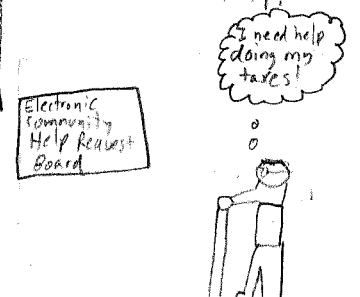 I need help
doing my
taxes!
Electronic
Community
Help Request
Board